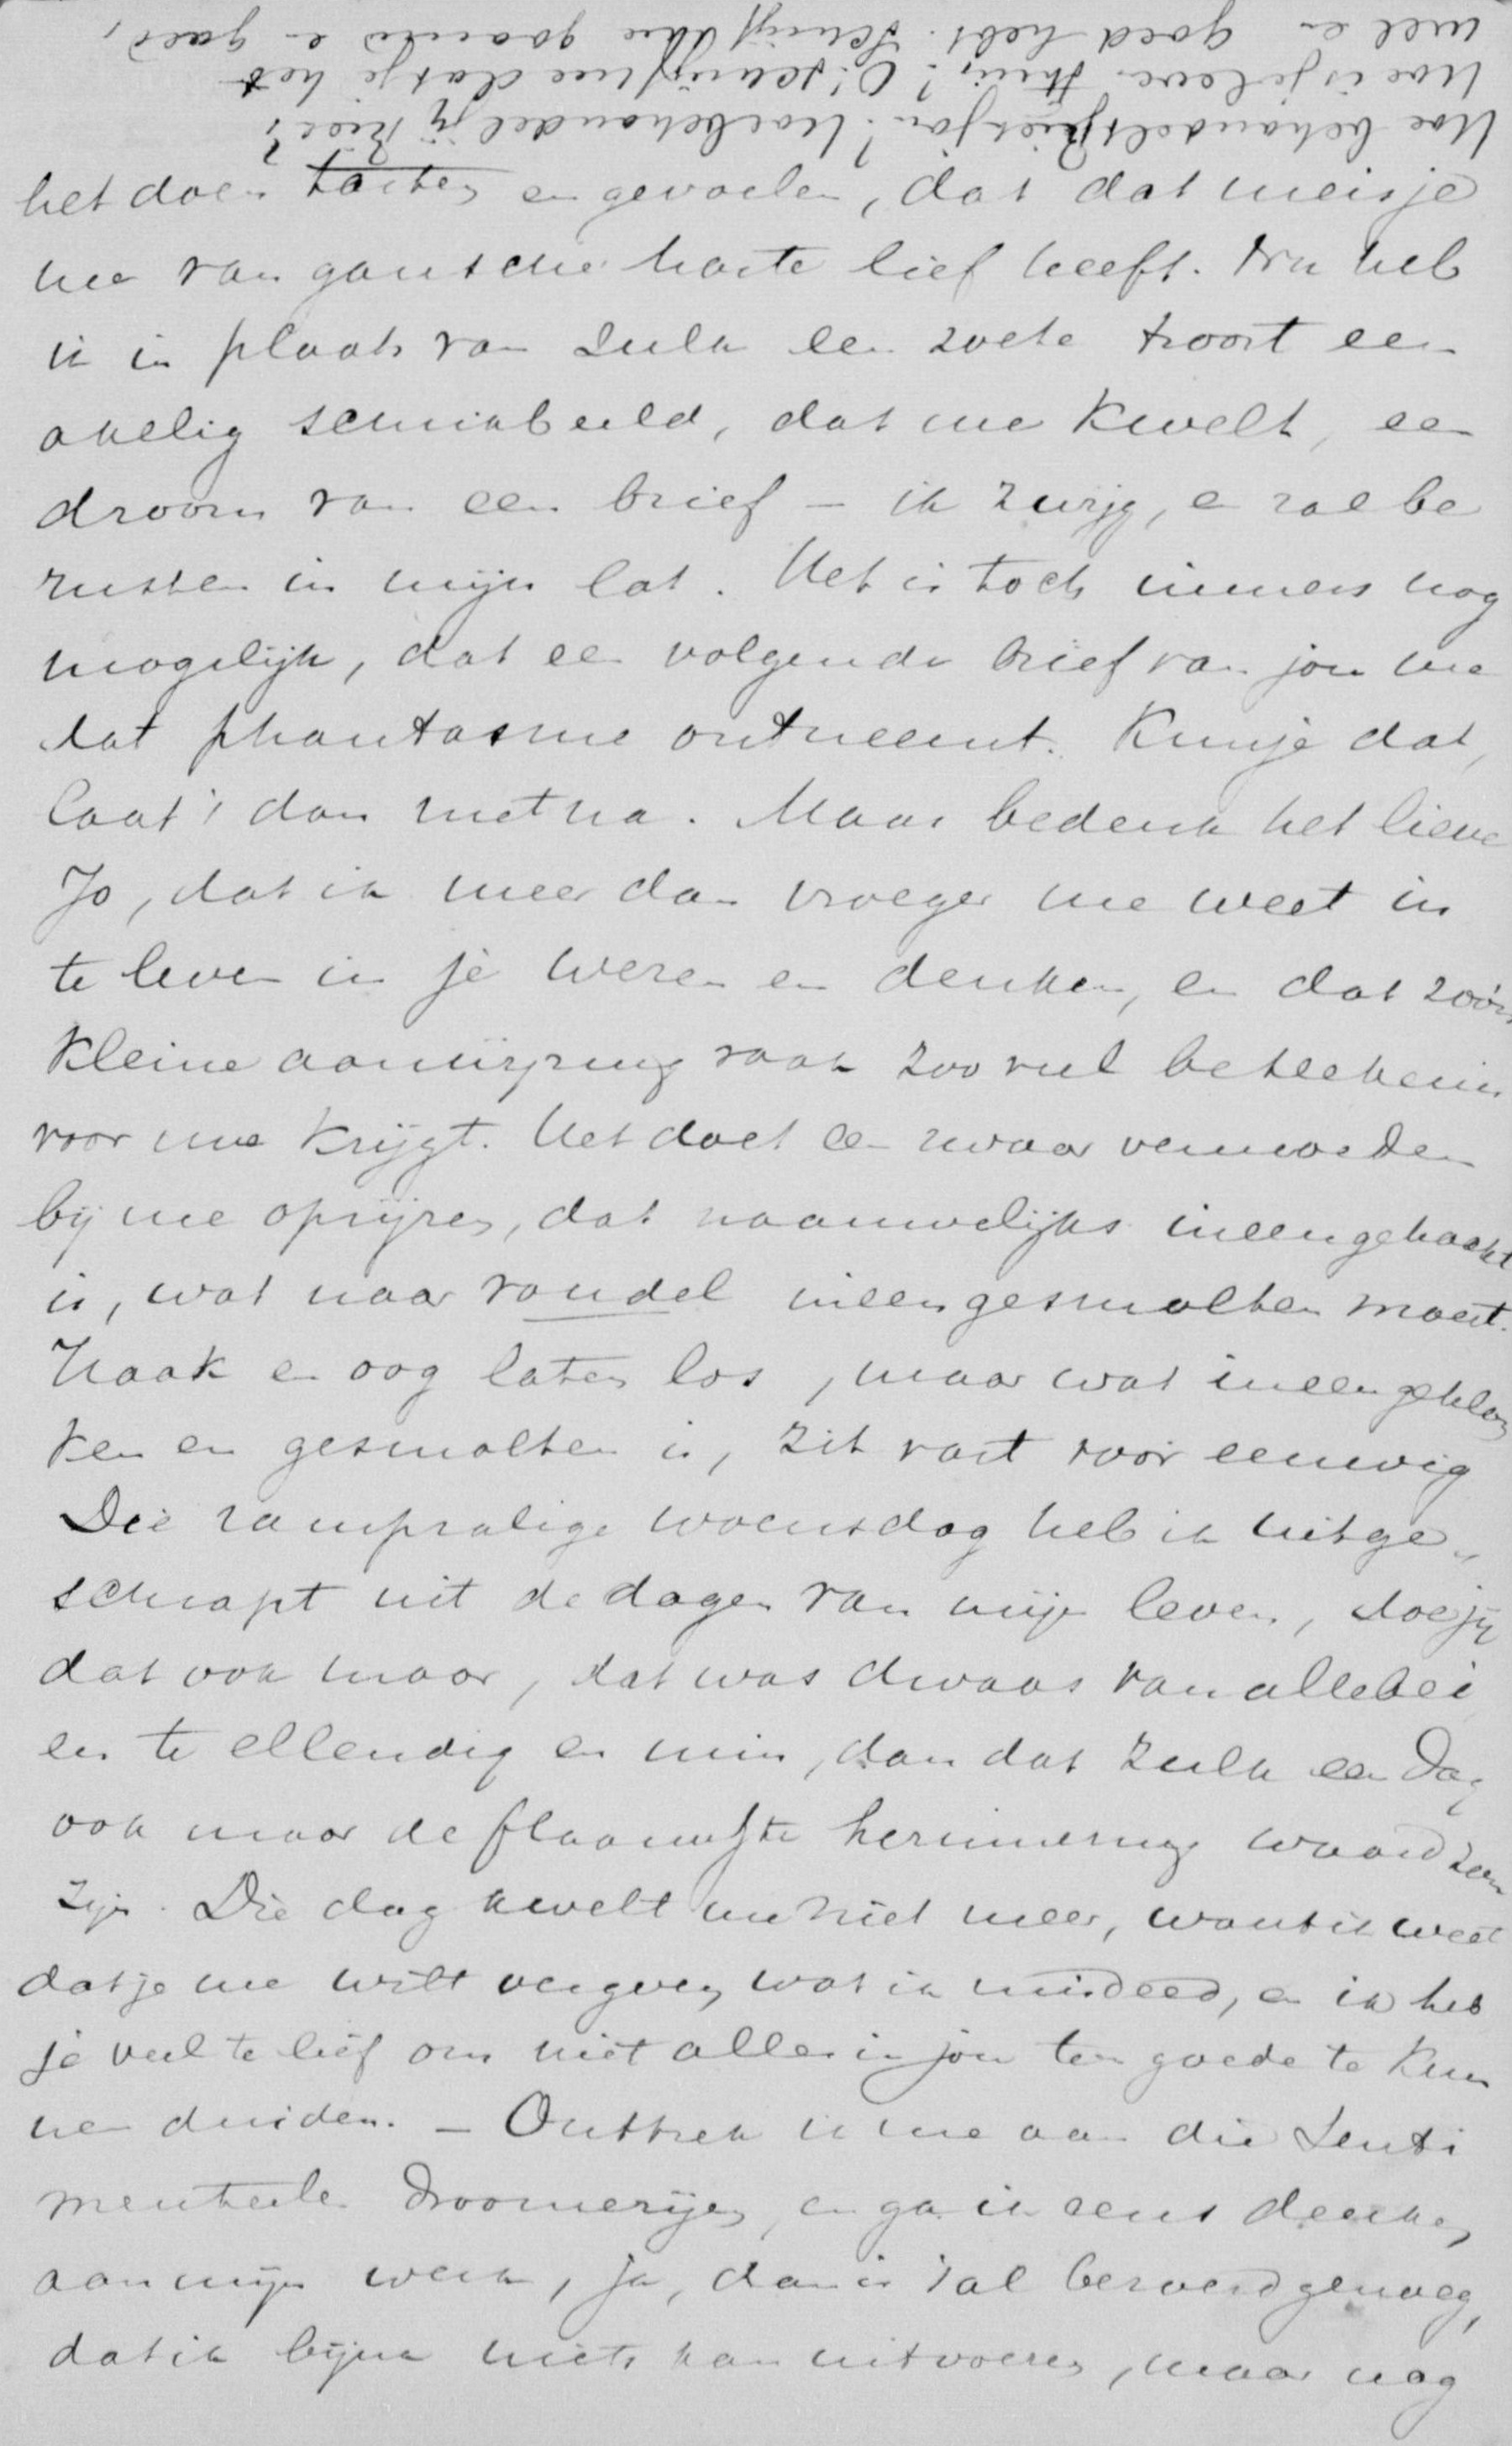 Hoe behandelt Piet jou? Hoe behandel jij Piet?
Hoe is je leven thuis? O! schrijf me dat je het
wel en goed hebt. Schrijf dan gaande e goed,
het doen tasten en gevoelen, dat dat meisje
me van gansche harte lief heeft. Nu heb
ik in plaats van zulk een zoete troost een
akelig schrikbeeld, dat me kwelt, een
droom van een brief – ik zwijg, en zal be
rusten in mijn lot. Het is toch immers nog
mogelijk, dat een volgende brief van jou me
dat phantasme ontneemt. Kun je dat,
laat 't dan niet na. Maar bedenk het lieve
Jo, dat ik meer dan vroeger me weet in
te leven in je wezen en denken, en dat zóó'n
kleine aanwijzing vaak zooveel beteekenis
voor me krijgt. Het doet een zwaar vermoeden
bij me oprijzen, dat naauwelijks ineengehaakt
is, wat naar van del ineengesmolten moest.
Haak en oog laten los, maar wat ineengeklon
ken en gesmolten is, zit vast voor eeuwig
Die rampzalige woensdag heb ik uitge„
schrapt uit de dagen van mijn leven, doe jij
dat ook maar, dat was dwaas van allebei
en te ellendig en min, dan dat zulk een dag
ook maar de flaauwste herinnering waard zou
zijn. Die dag kwelt me niet meer, want ik weet
dat je me wilt vergeven wat ik misdeed, en ik heb
je veel te lief om niet alles in jou ten goede te kun
nen duiden. – Onttrek ik me aan die senti
menteele droomerijen, en ga ik eens denken
aan mijn werk, ja, dan is 't al beroerd genoeg,
dat ik bijna niets kan uitvoeren, maar nog